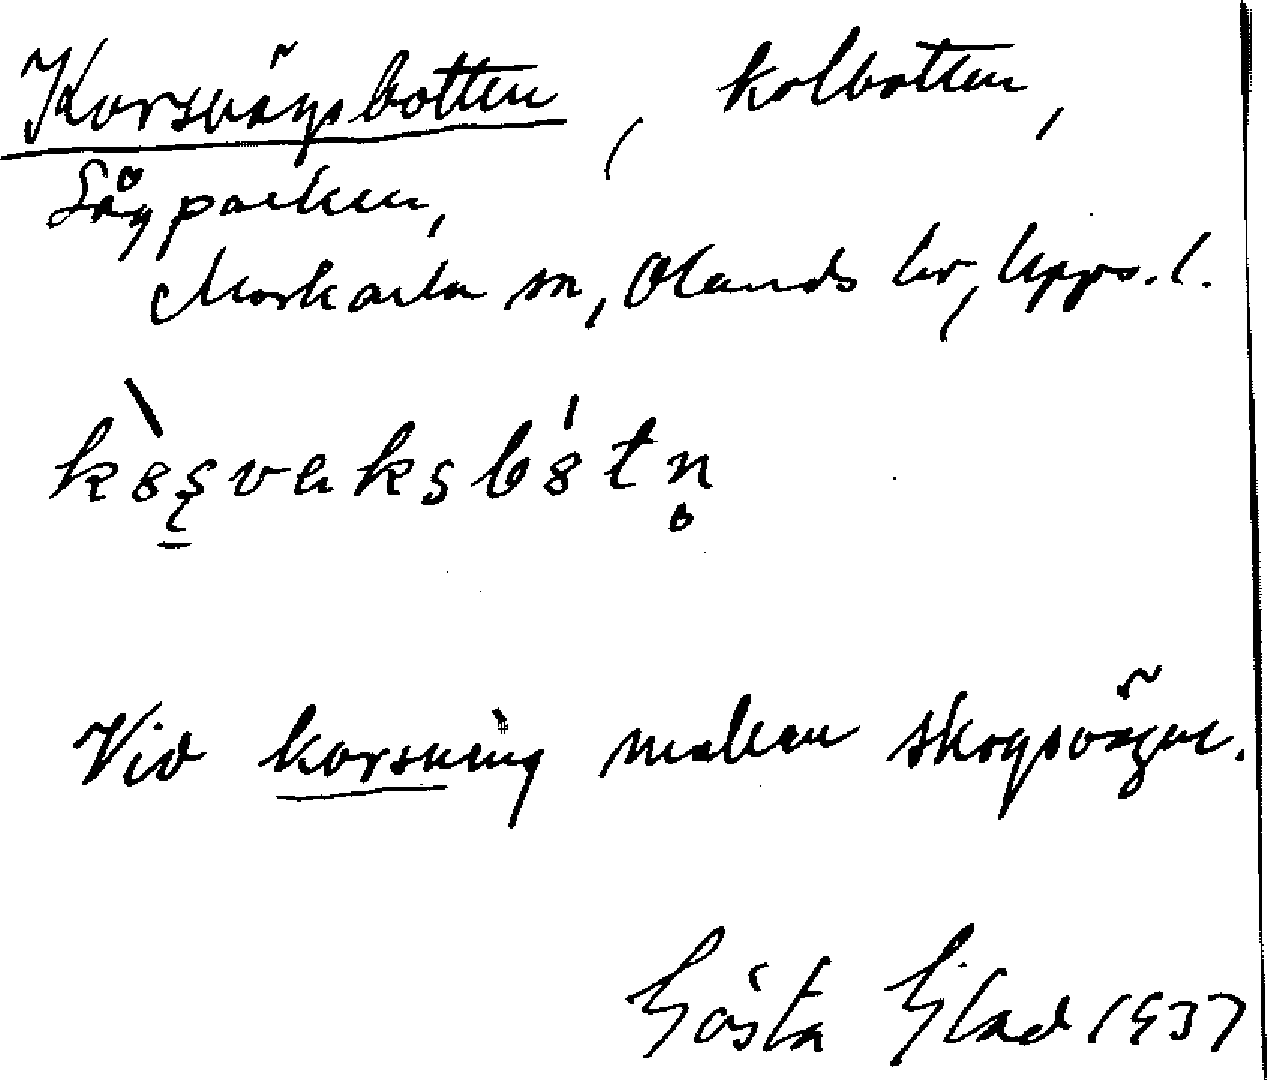 Korsvägsbotten, kolbotten,
Sågparken,
Morkarla sn, Olands hr, Upps. l.
Vid korsning mellan skogsvägar.
Gösta Glad 1937